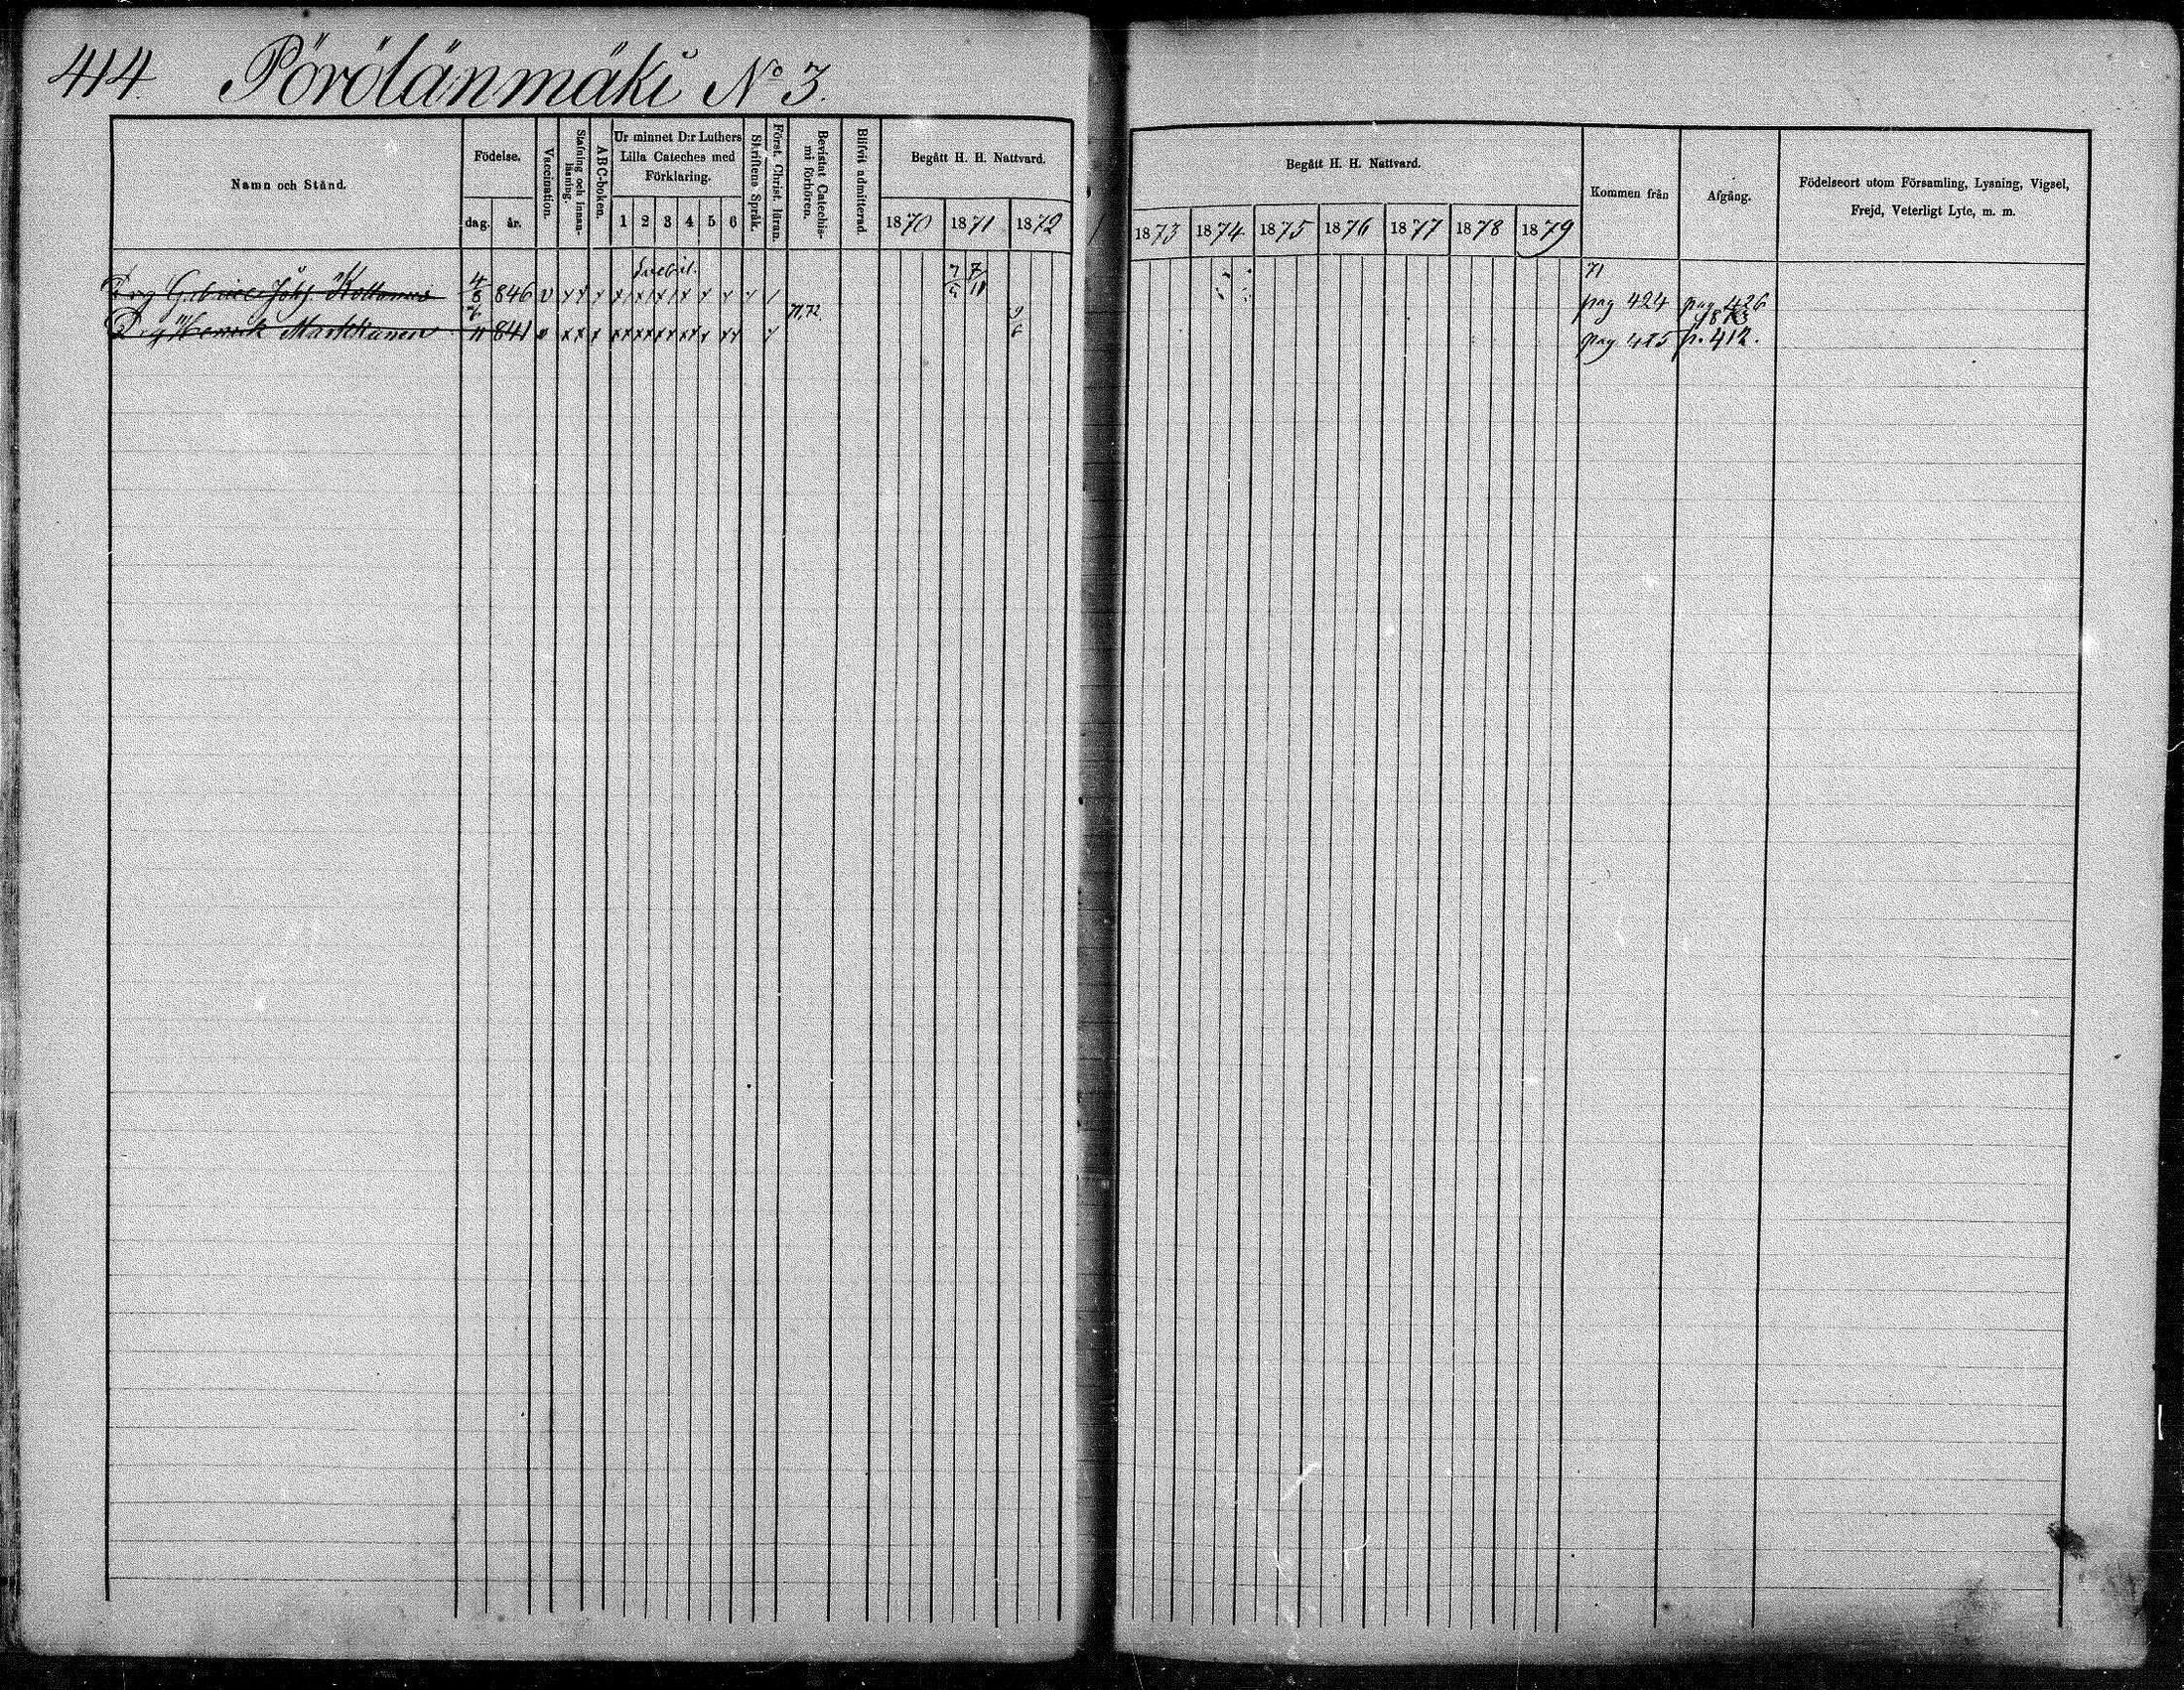 414. Pörölänmäki No 3.
Namn och Stånd.
Födelse.
dag. år.
Vaccination.
Stafning och innanläsning.
ABC-boken.
Ur minnet D:r Luthers Lilla Cateches med Förklaring.
1 2 3 4 5 6
Skriftens Språk.
Först. Christ. läran.
Bevistat Catechismi förhören.
Blifvit admitterad.
Begått H. H. Nattvard.
1870 1871 1872
Begått H. H. Nattvard.
1873 1874 1875 1876 1877 1878 1879
Kommen från
Afgång.
Födelseort utom Församling, Lysning, Vigsel, Frejd, Veterligt Lyte, m. m.
71
4/8 846 v pag 424 pag 426
71,72 1873
Markkanen 11 841 v p. 412.